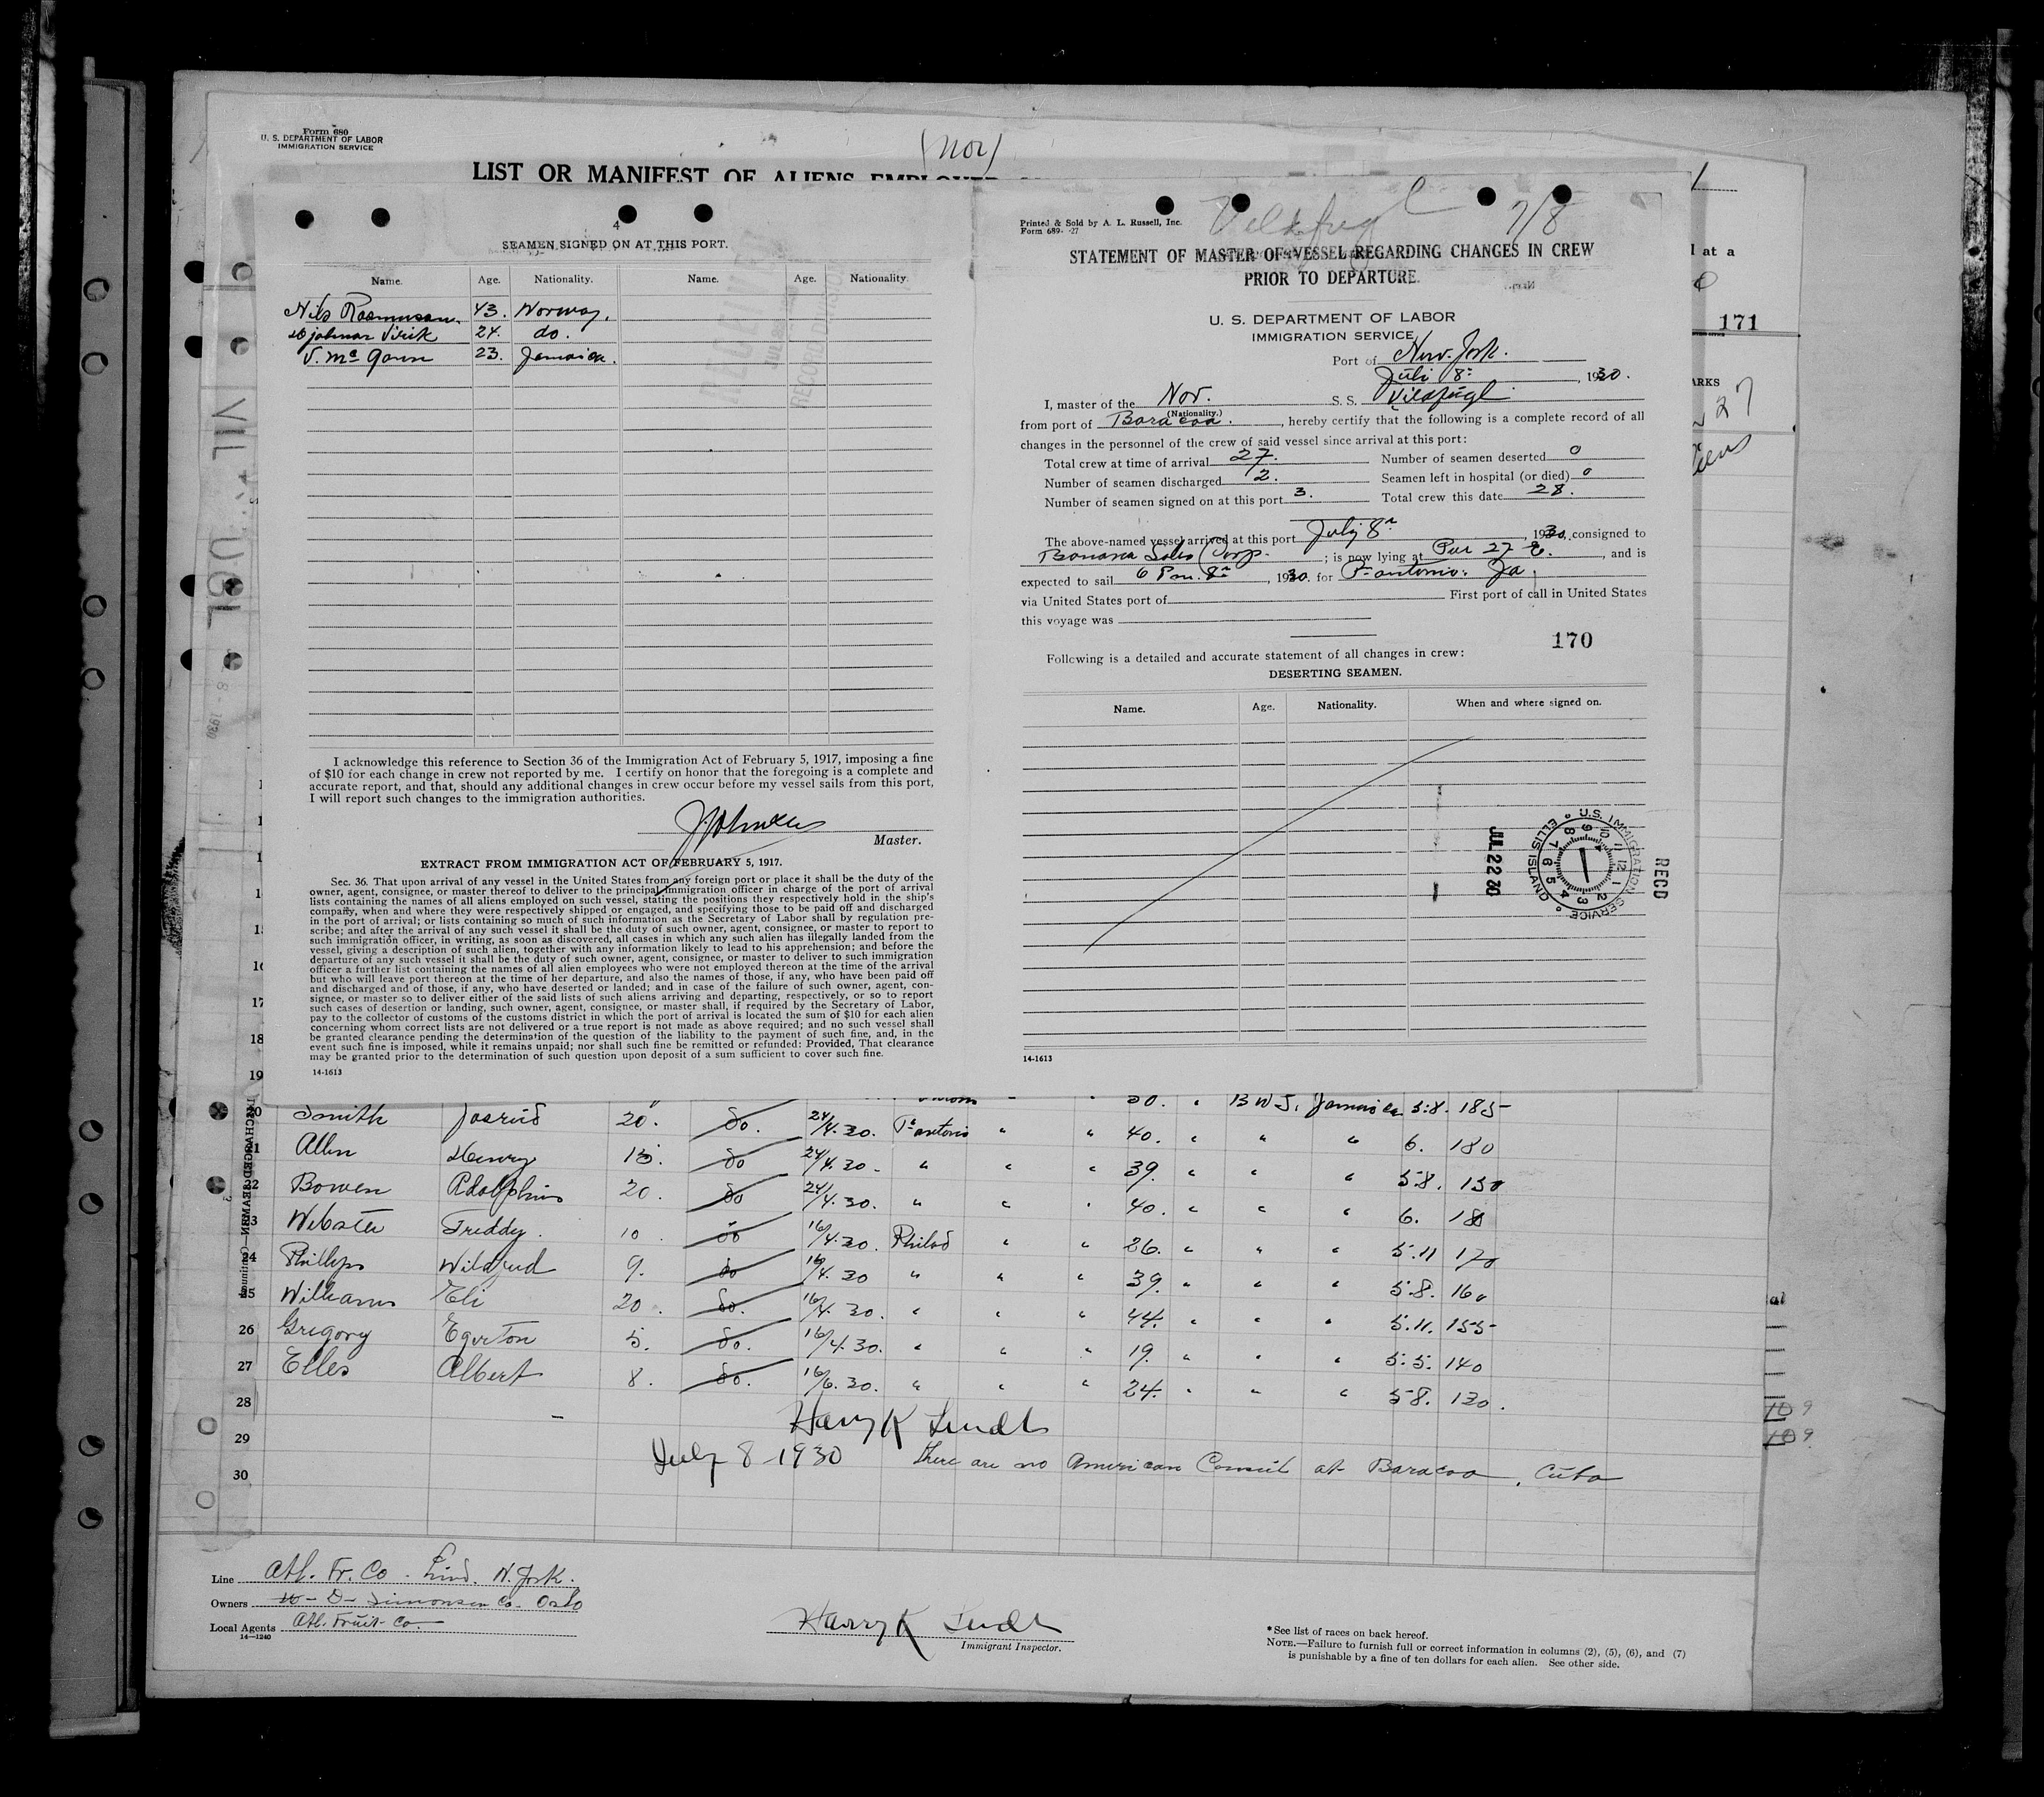 Form 680
U. S. DEPARTMENT OF LABOR
IMMIGRATION SERVICE
(Nor)
LIST OR MANIFEST OF ALIENS EMPLOYED
4
SEAMEN SIGNED ON AT THIS PORT.
Name. Age. Nationality. Name. Age. Nationality.
Nils Rasmussen 43. Norway.
24. do.
V. McGown 23. Jamaica.
I acknowledge this reference to Section 36 of the Immigration Act of February 5, 1917, imposing a fine
of $10 for each change in crew not reported by me. I certify on honor that the foregoing is a complete and
accurate report, and that, should any additional changes in crew occur before my vessel sails from this port,
I will report such changes to the immigration authorities.
Master.
EXTRACT FROM IMMIGRATION ACT OF FEBRUARY 5, 1917.
Sec. 36. That upon arrival of any vessel in the United States from any foreign port or place it shall be the duty of the
owner, agent, consignee, or master thereof to deliver to the principal immigration officer in charge of the port of arrival
lists containing the names of all aliens employed on such vessel, stating the positions they respectively hold in the ship's
company, when and where they were respectively shipped or engaged, and specifying those to be paid off and discharged
in the port of arrival; or lists containing so much of such information as the Secretary of Labor shall by regulation pre-
scribe; and after the arrival of any such vessel it shall be the duty of such owner, agent, consignee, or master to report to
such immigration officer, in writing, as soon as discovered, all cases in which any such alien has illegally landed from the
vessel, giving a description of such alien, together with any information likely to lead to his apprehension; and before the
departure of any such vessel it shall be the duty of such owner, agent, consignee, or master to deliver to such immigration
officer a further list containing the names of all alien employees who were not employed thereon at the time of the arrival
but who will leave port thereon at the time of her departure, and also the names of those, if any, who have been paid off
and discharged and of those, if any, who have deserted or landed; and in case of the failure of such owner, agent, con-
signee, or master so to deliver either of the said lists of such aliens arriving and departing, respectively, or so to report
such cases of desertion or landing, such owner, agent, consignee, or master shall, if required by the Secretary of Labor,
pay to the collector of customs of the customs district in which the port of arrival is located the sum of $10 for each alien
concerning whom correct lists are not delivered or a true report is not made as above required; and no such vessel shall
be granted clearance pending the determination of the question of the liability to the payment of such fine, and, in the
event such fine is imposed, while it remains unpaid; nor shall such fine be remitted or refunded: Provided, That clearance
may be granted prior to the determination of such question upon deposit of a sum sufficient to cover such fine.
14-1613
Printed & Sold by A. L. Russell, Inc.
Form 689- -27
Vildfugl 7/8
STATEMENT OF MASTER OF VESSEL REGARDING CHANGES IN CREW
PRIOR TO DEPARTURE.
U. S. DEPARTMENT OF LABOR
IMMIGRATION SERVICE
Port of New-York.
Juli 8: , 1930.
I, master of the Nor. S. S. Vildfugl
(Nationality.)
from port of Baracoa. , hereby certify that the following is a complete record of all
changes in the personnel of the crew of said vessel since arrival at this port:
Total crew at time of arrival 27. Number of seamen deserted 0
Number of seamen discharged 2. Seamen left in hospital (or died) 0
Number of seamen signed on at this port 3. Total crew this date 28.
The above-named vessel arrived at this port July 8th , 1930, consigned to
Banana Sales Corp. ; is now lying at Pier 27 E. , and is
expected to sail 6 Pm. 8th , 1930. for Pt antonio. Ja.
via United States port of First port of call in United States
this voyage was
170
Following is a detailed and accurate statement of all changes in crew:
DESERTING SEAMEN.
Name. Age. Nationality. When and where signed on.
RECD
U.S. IMMIGRATION SERVICE ELLIS ISLAND
JUL 22 30
14-1613
l at a
171
ARKS
27
50. " B W I. Jamaica 5:8. 185
20 Smith 20. do. 24/4.30. Pt antonio " " 40. " " " 6. 180
21 Allen Henry 15. do 24/4.30. " " " 39. " " " 5.8. 150
22 Bowen Adolphus 20. do 24/4.30. " " " 40. " " " 6. 180
23 Webster Freddy. 10. do 16/4.30. Philad " " 26. " " " 5.11 170
24 Phillips Wilfred 9. do 16/4.30 " " " 39. " " " 5.8. 160
25 Williams Eli 20. do. 16/4.30. " " " 44. " " " 5.11. 155
26 Gregory Egerton 5. do. 16/4.30. " " " 19. " " " 5:5. 140
27 Elles Albert 8. do. 16/6.30. " " " 24. " " " 5.8. 130.
28 Harry K Lindt
29 July 8-1930 There are no American Consul at Baracoa, Cuba
30
Line Atl. Fr. Co. Lind. N. York.
Owners D- Simonsen Co- Oslo
Local Agents Atl. Fruit-Co.
14—1240
Harry K Lindt
Immigrant Inspector.
* See list of races on back hereof.
NOTE.—Failure to furnish full or correct information in columns (2), (5), (6), and (7)
is punishable by a fine of ten dollars for each alien. See other side.